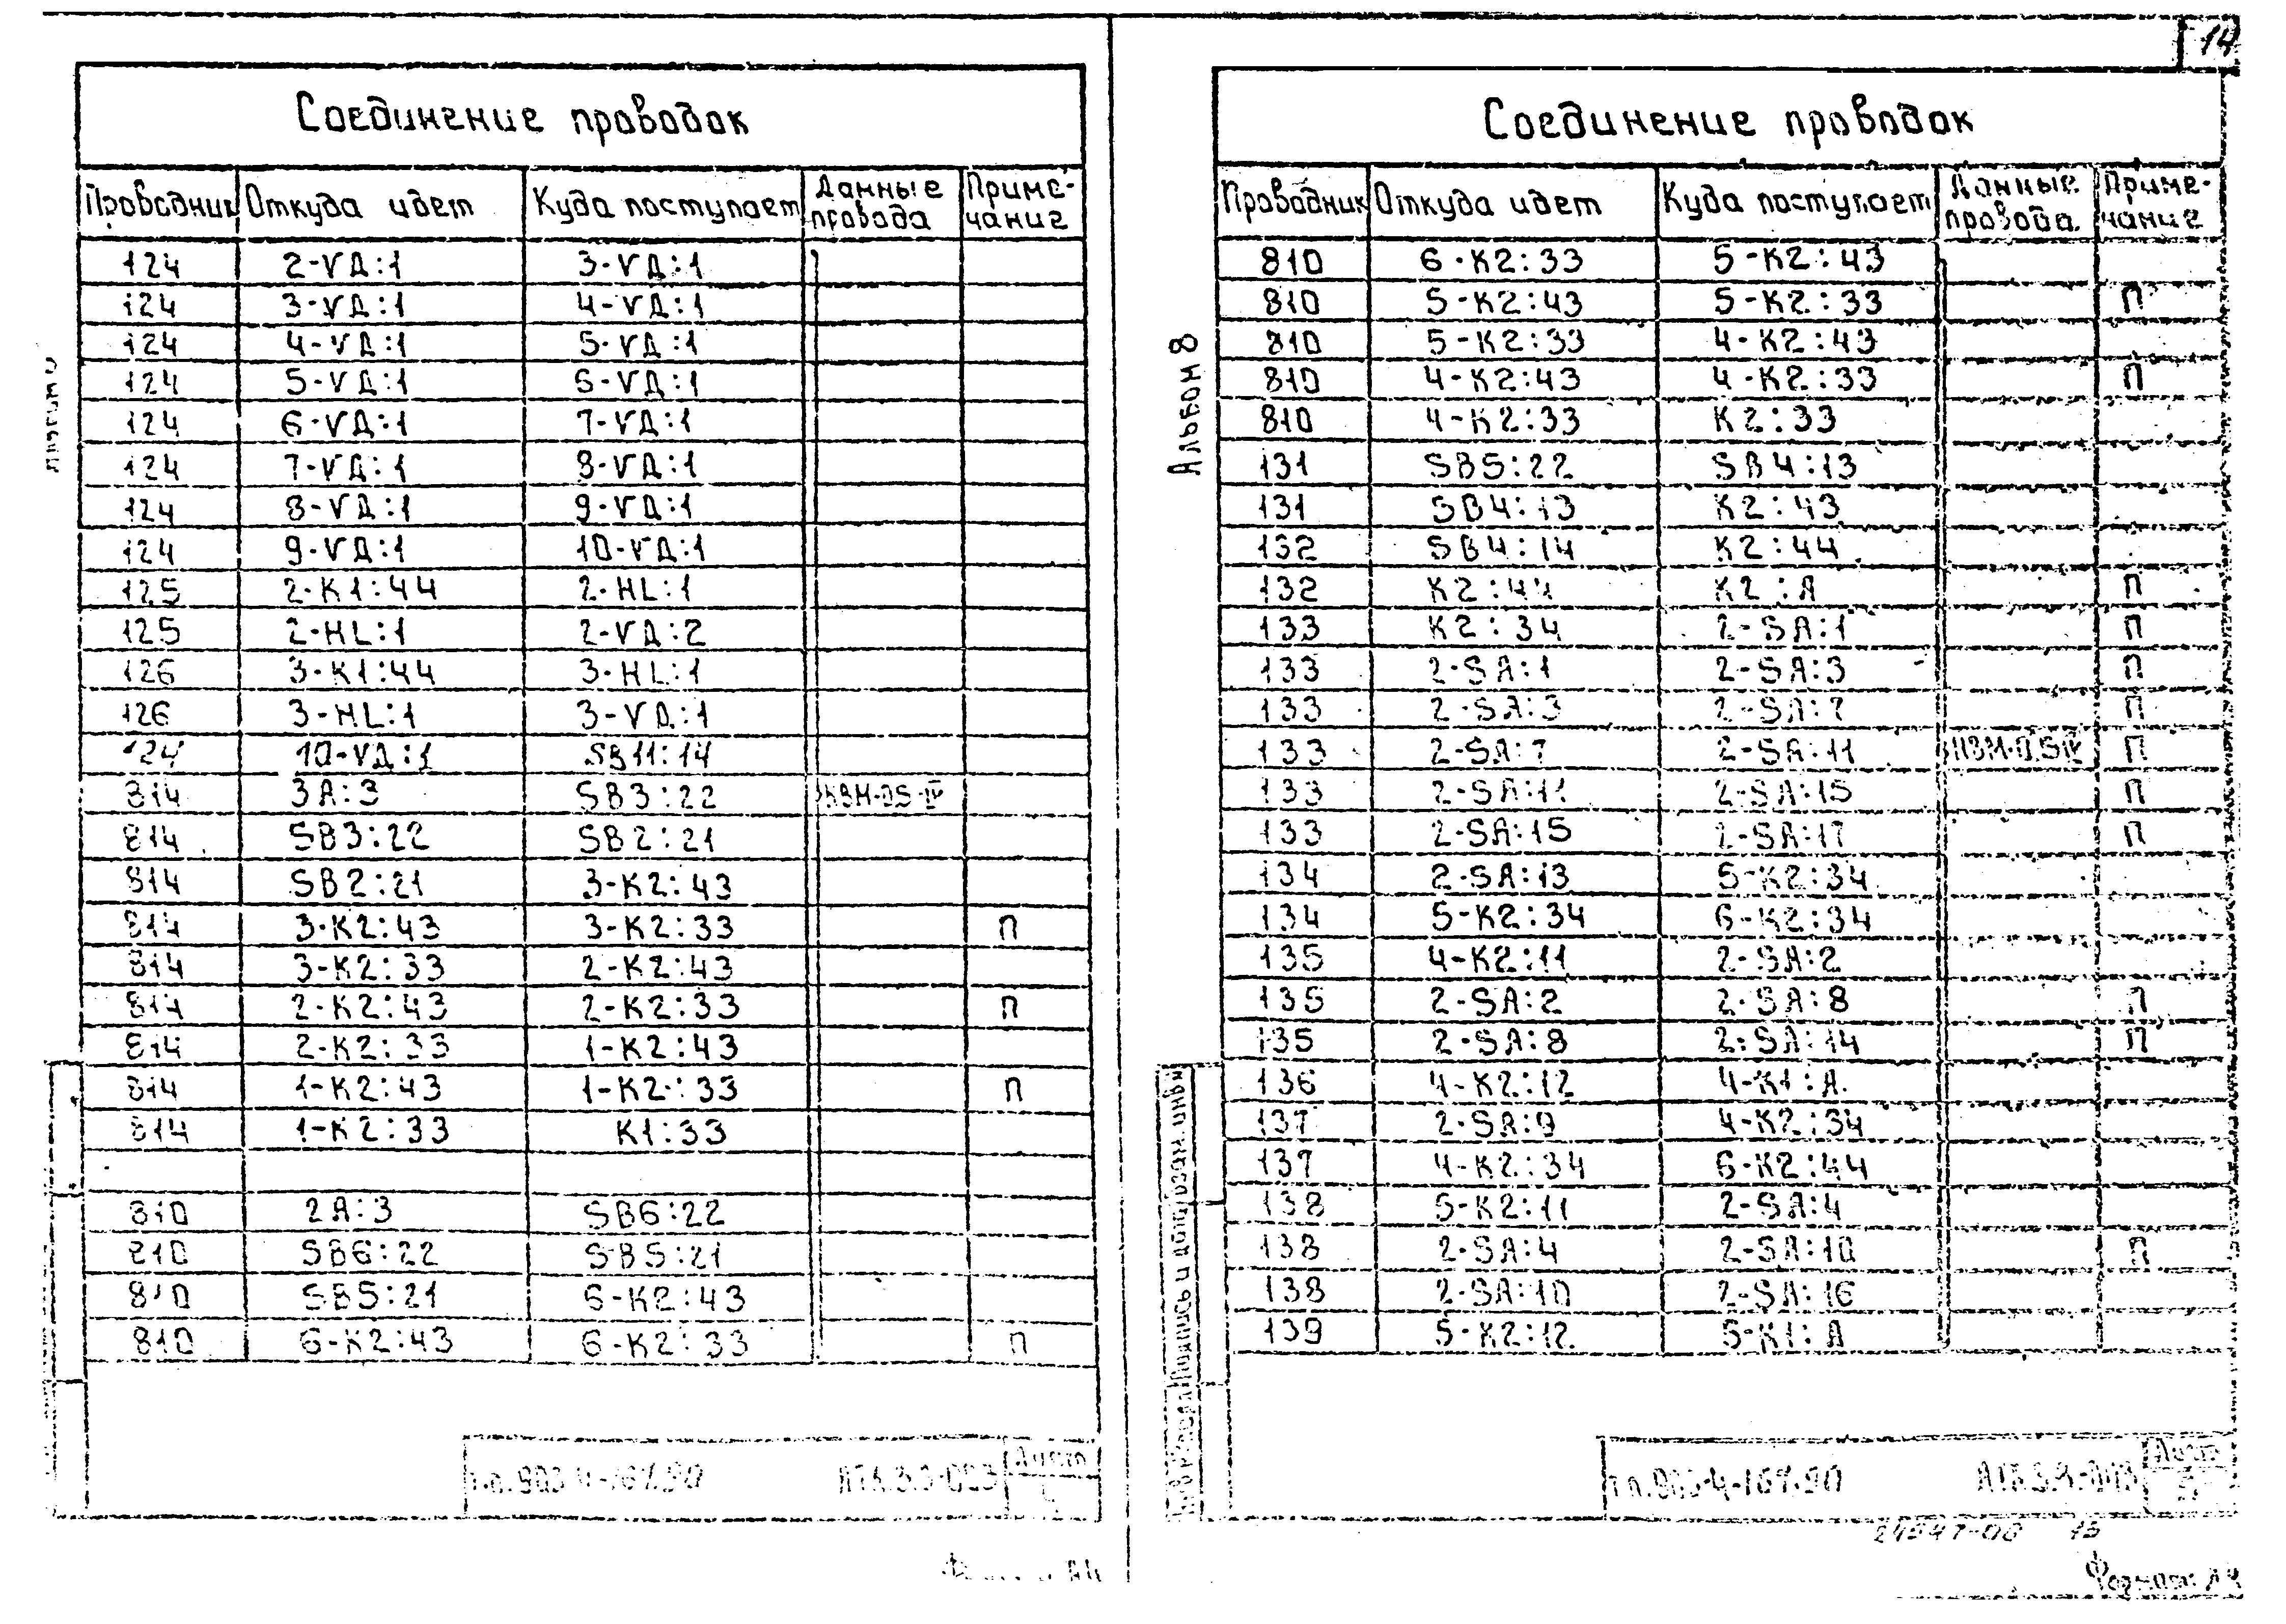 14
Соединение проводок
Проводник Откуда идет Куда поступает Данные провода Приме-чание
124 2-VД:1 3-VД:1
124 3-VД:1 4-VД:1
124 4-VД:1 5-VД:1
124 5-VД:1 6-VД:1
124 6-VД:1 7-VД:1
124 7-VД:1 8-VД:1
124 8-VД:1 9-VД:1
124 9-VД:1 10-VД:1
125 2-К1:44 2-HL:1
125 2-HL:1 2-VД:2
126 3-К1:44 3-HL:1
126 3-HL:1 3-VД:1
124 10-VД:1 SB11:14
814 3А:3 SB3:22
814 SB3:22 SB2:21
814 SB2:21 3-К2:43
814 3-К2:43 3-К2:33 П
814 3-К2:33 2-К2:43
814 2-К2:43 2-К2:33 П
814 2-К2:33 1-К2:43
814 1-К2:43 1-К2:33 П
814 1-К2:33 К1:33
810 2А:3 SB6:22
810 SB6:22 SB5:21
810 SB5:21 6-К2:43
810 6-К2:43 6-К2:33 П
Лист
Альбом 8
Соединение проводок
Проводник Откуда идет Куда поступает Данные провода Приме-чание
810 6-К2:33 5-К2:43
810 5-К2:43 5-К2:33 П
810 5-К2:33 4-К2:43
810 4-К2:43 4-К2:33 П
810 4-К2:33 К2:33
131 SB5:22 SB4:13
131 SB4:13 К2:43
132 SB4:14 К2:44
132 К2:44 К2:А П
133 К2:34 2-SA:1 П
133 2-SA:1 2-SA:3 П
133 2-SA:3 2-SA:7 П
133 2-SA:7 2-SA:11 П
133 2-SA:11 2-SA:15 П
133 2-SA:15 2-SA:17 П
134 2-SA:13 5-К2:34
134 5-К2:34 6-К2:34
135 4-К2:11 2-SA:2
135 2-SA:2 2-SA:8 П
135 2-SA:8 2-SA:14 П
136 4-К2:12 4-К1:А
137 2-SA:9 4-К2:34
137 4-К2:34 6-К2:44
138 5-К2:11 2-SA:4
138 2-SA:4 2-SA:10 П
138 2-SA:10 2-SA:16
139 5-К2:12 5-К1:А
т.п.903-4-167.90 Лист
Формат А4